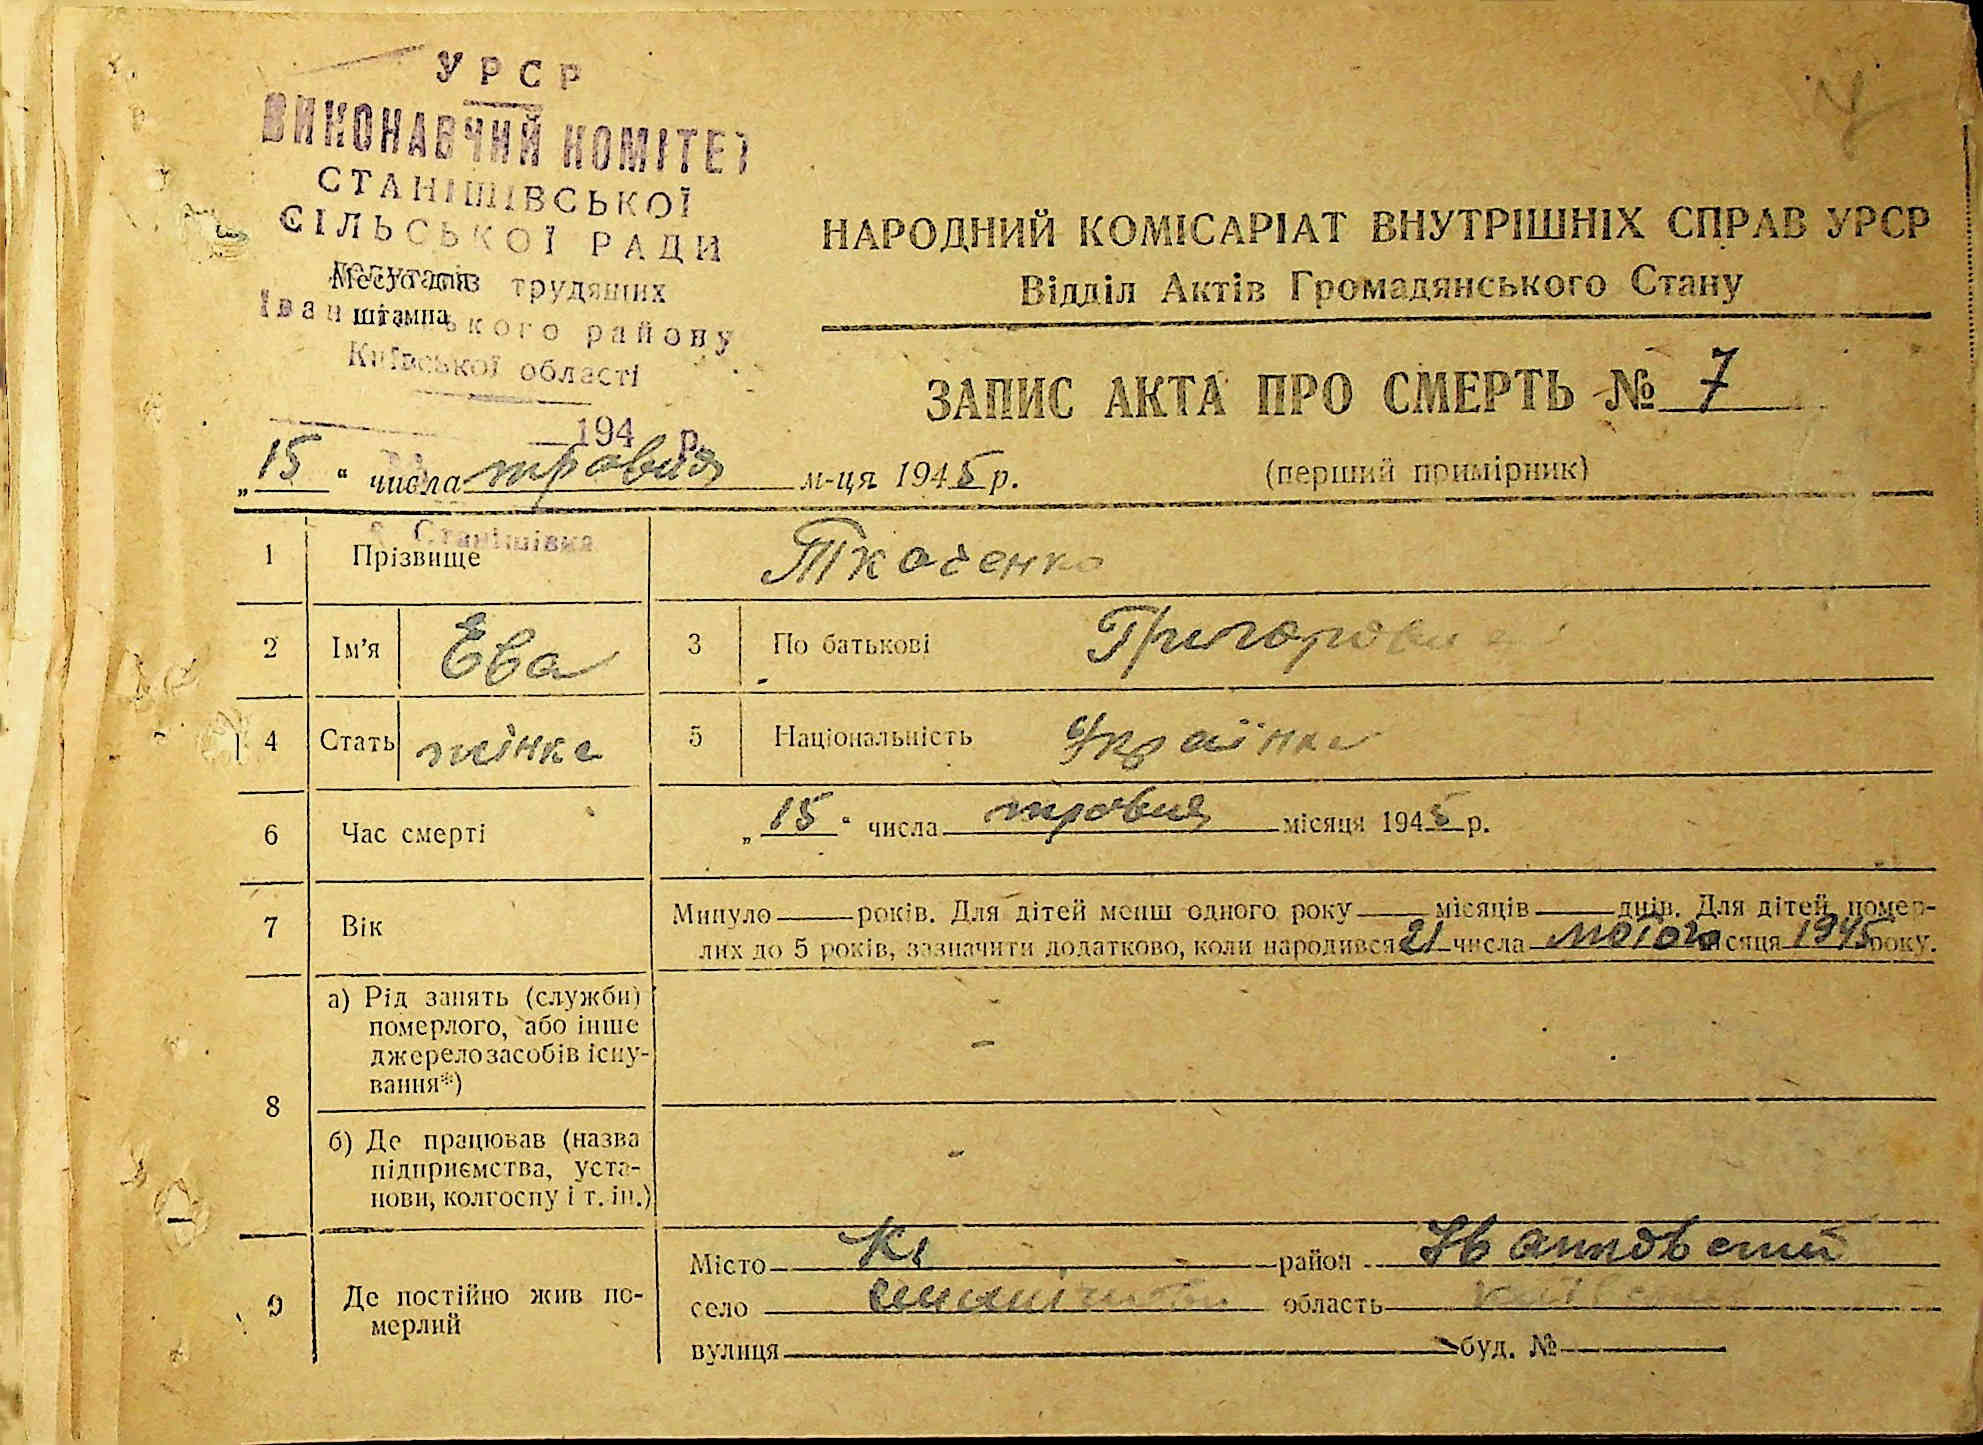 УРСР
ВИКОНАВЧИЙ КОМІТЕТ
СТАНІШІВСЬКОЇ
СІЛЬСЬКОЇ РАДИ
депутатів трудящих
Место для
штампа
району
Київської області
194 р.
с. Станішівка
7
НАРОДНИЙ КОМІСАРІАТ ВНУТРІШНІХ СПРАВ УРСР
Відділ Актів Громадянського Стану
ЗАПИС АКТА ПРО СМЕРТЬ № 7
„15" числа травня м-ця 1945 р.
(перший примірник)
1 Прізвище Ткаченко
2 Ім'я Ева 3 По батькові
4 Стать жінка 5 Національність Українка
6 Час смерті „15" числа травня місяця 1945 р.
7 Вік Минуло років. Для дітей менш одного року місяців днів. Для дітей помер-
лих до 5 років, зазначити додатково, коли народився 21 числа лютого місяця 1945 року.
8 а) Рід занять (служби)
померлого, або інше
джерело засобів існу-
вання*)
-
б) Де працював (назва
підприємства, уста-
нови, колгоспу і т. ін.)
-
9 Де постійно жив по-
мерлий
Місто район
село область
вулиця буд. №